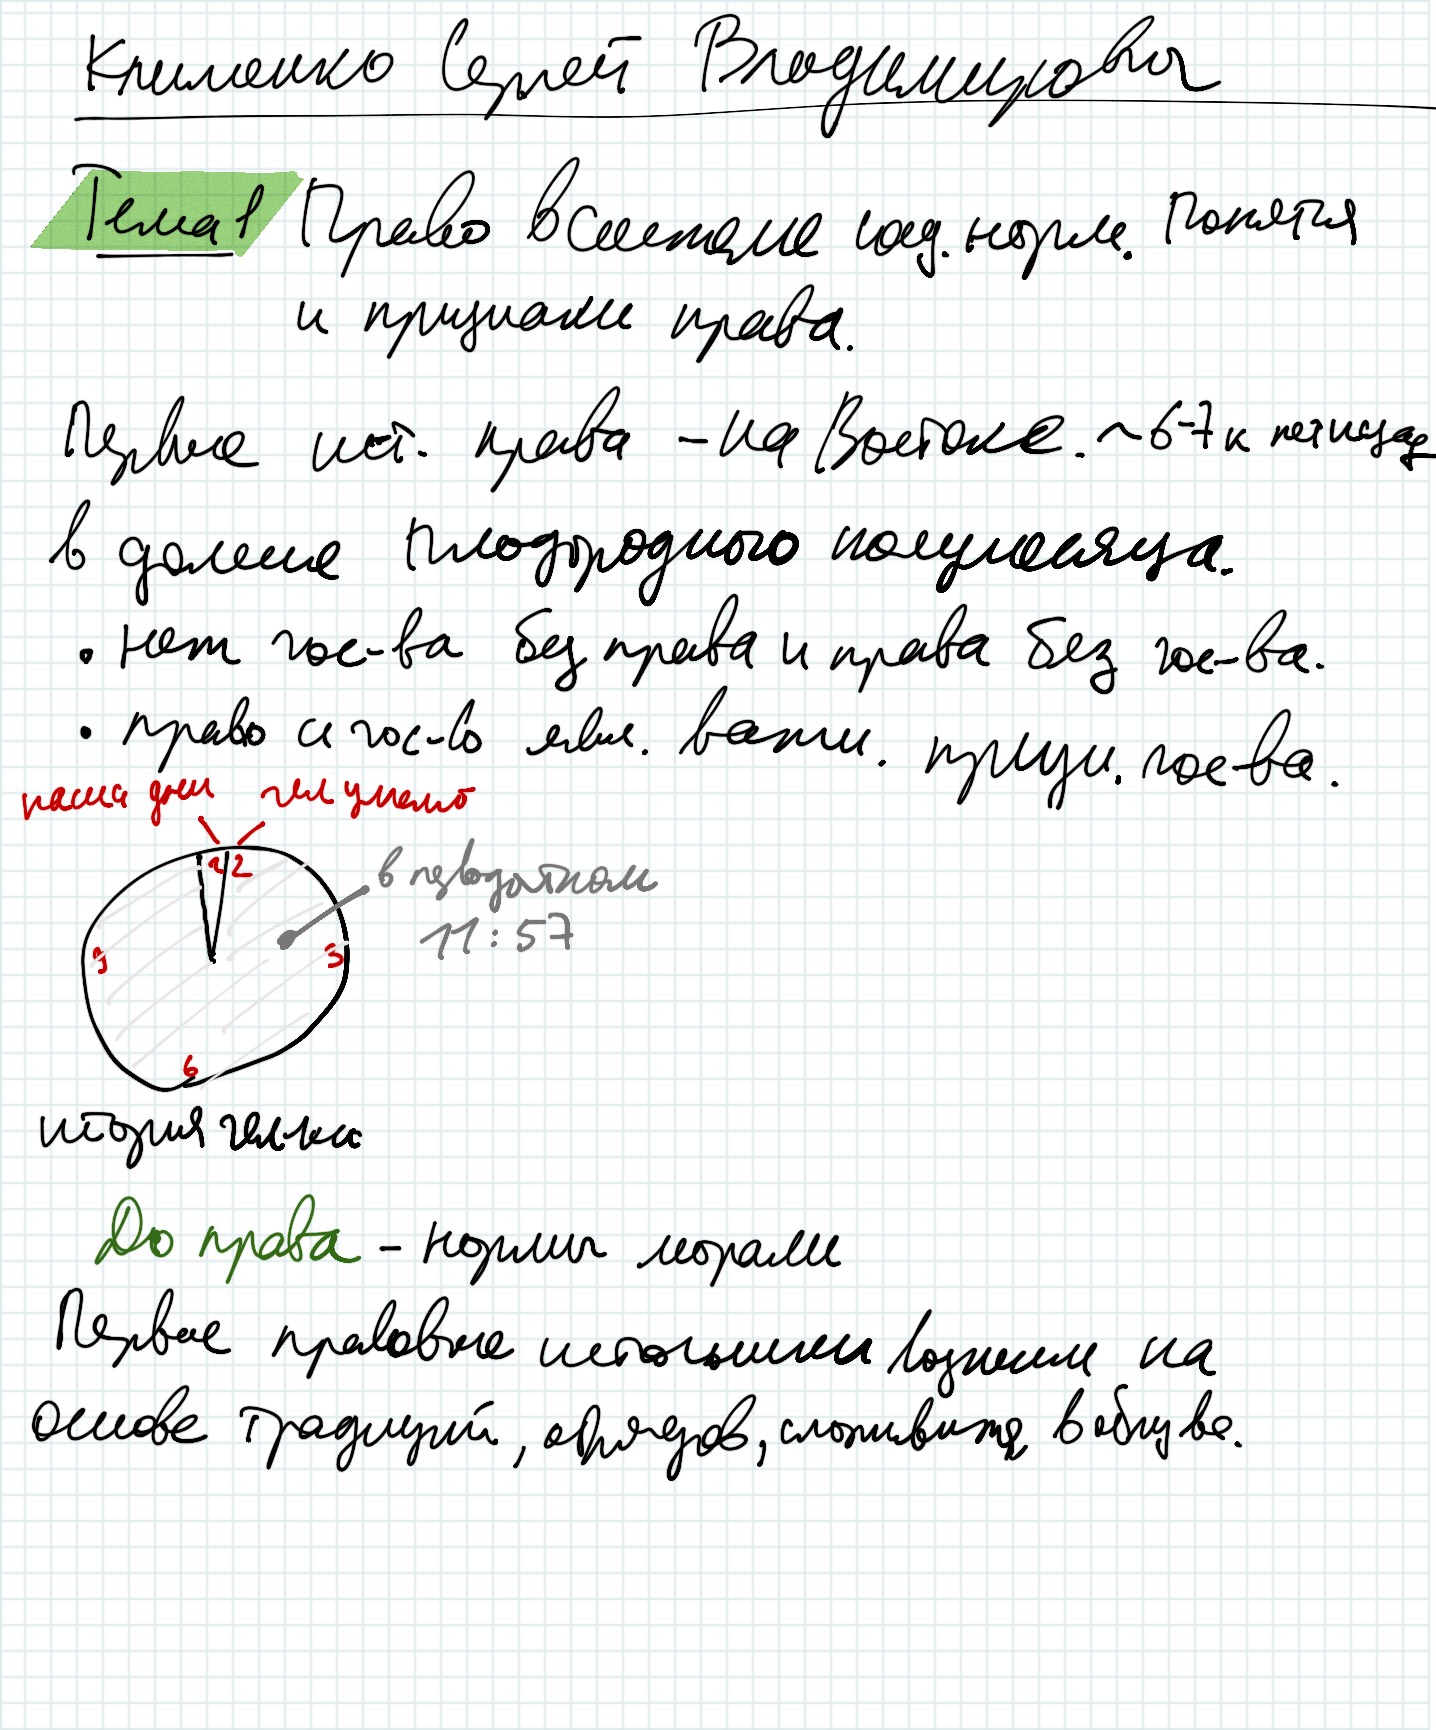 Клименко Сергей Владимирович
Тема 1 Право в системе соц. норм. Понятия
и признаки права.
Первые ист. права - на Востоке. ~6-7к лет назад
в долине Плодородного полумесяца.
• нет гос-ва без права и права без гос-ва.
• право и гос-во явл. важн. призн. гос-ва.
наши дни
12
в первобытном
11:57
9
3
6
история чел-ка
До права - нормы морали
Первые правовые источники возникли на
основе традиций, обрядов, сложивш в общ ве.